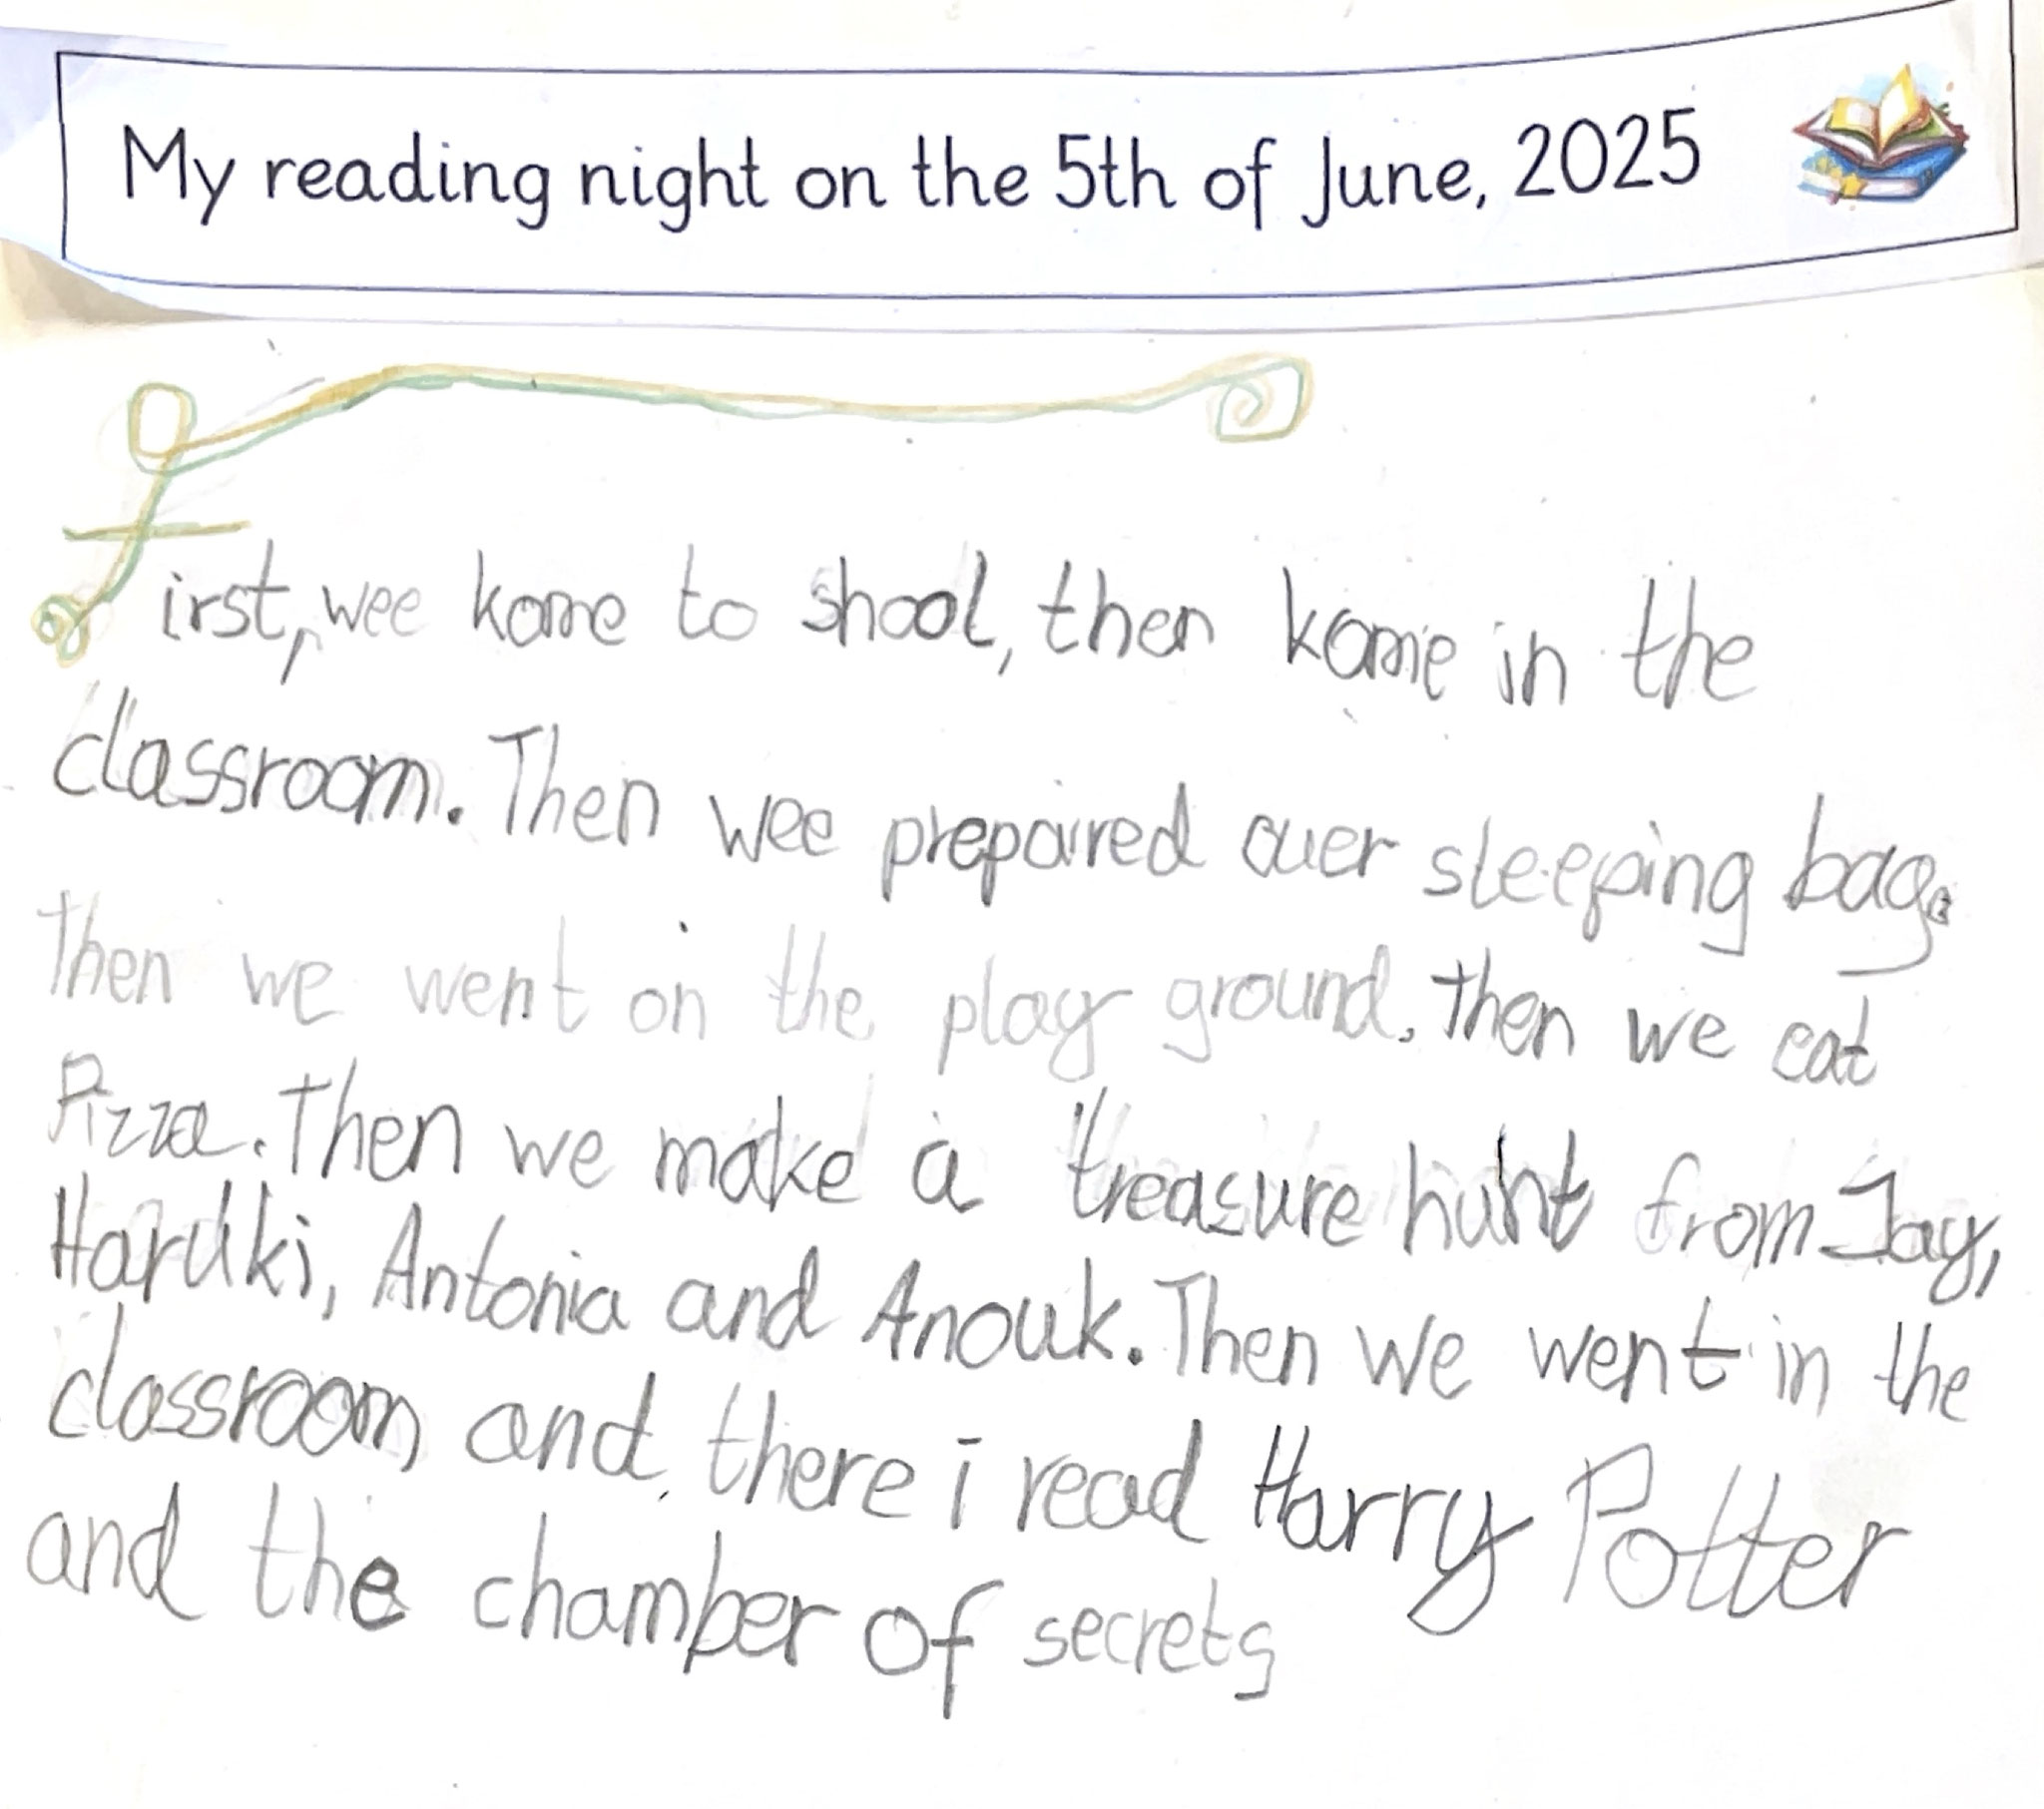 My reading night on the 5th of June, 2025
First, wee kome to shool, then kome in the
classroom. Then wee prepaired ouer sleeping bag.
Then we went on the play ground. Then we eat
Pizza. Then we make a treasure hunt from Jay,
Haruki, Antonia and Anouk. Then we went in the
classroom and there i read Harry Potter
and the chamber of secrets